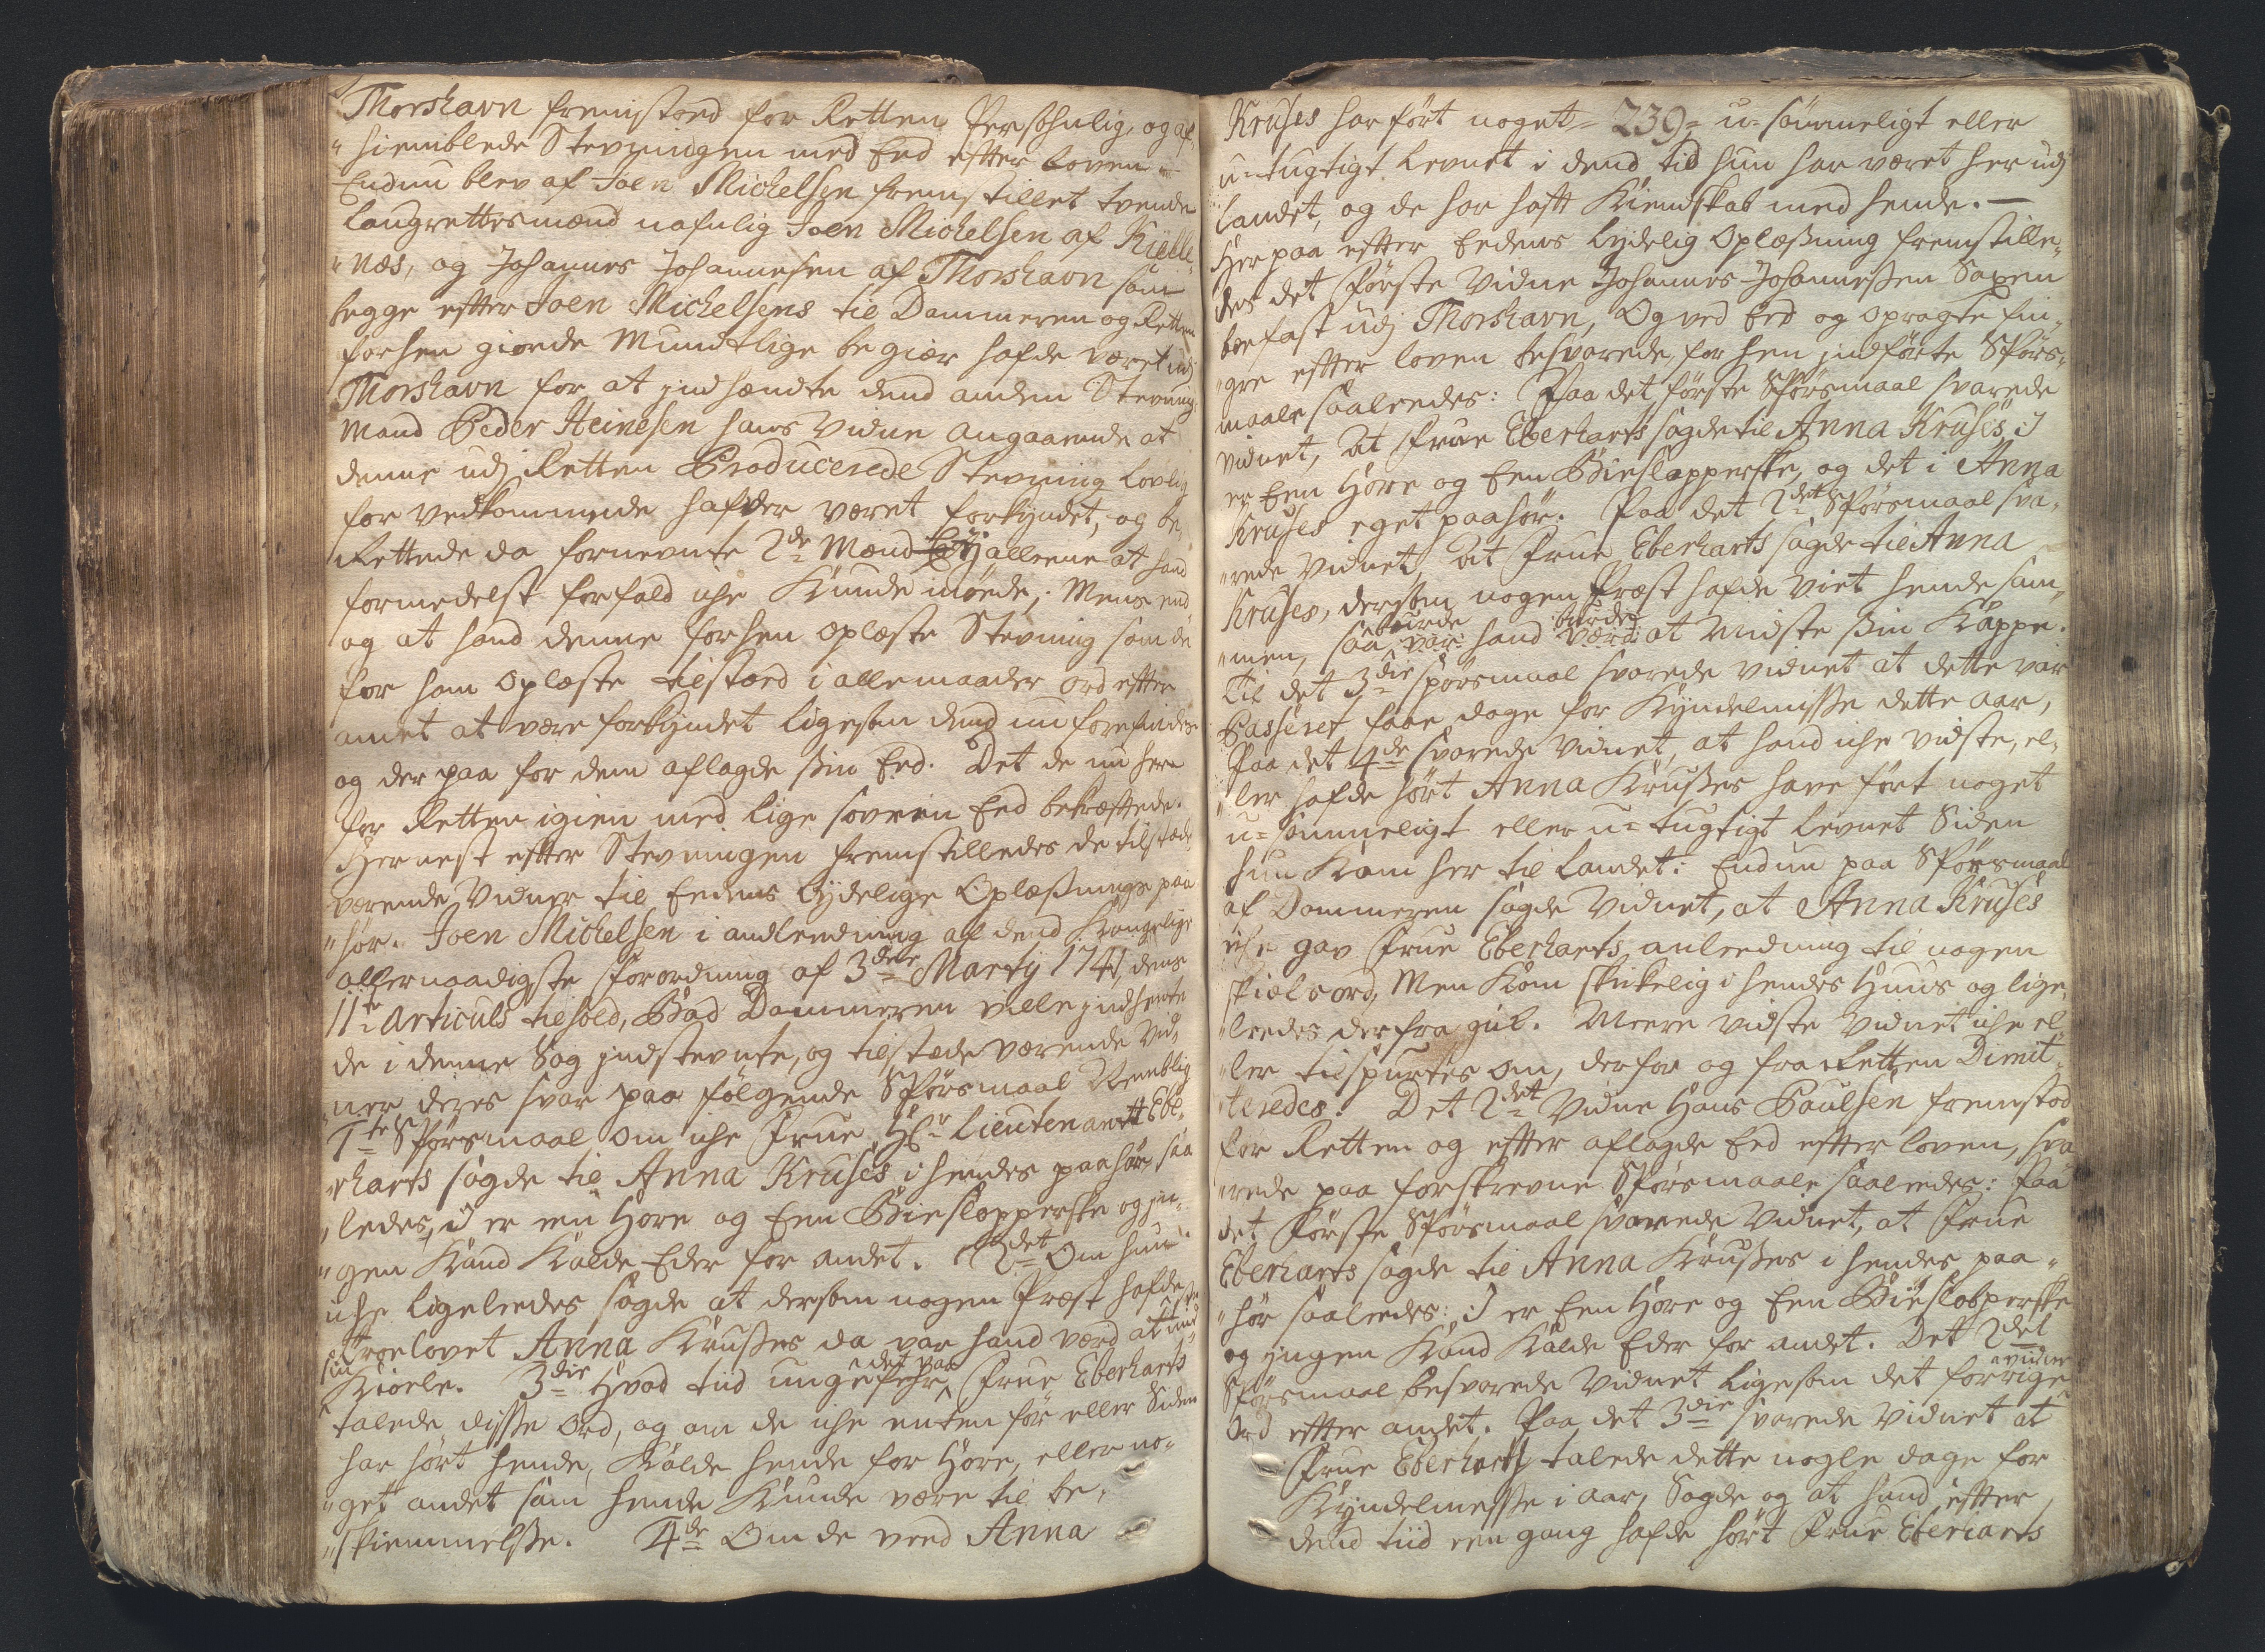 Thorshavn fremstoed for Retten Personlig, og af-
"hiemblede Stevningen med Eed efter Loven -
Endnu blev af Joen Michelsen fremstillet tvende
Laugrettesmænd nafnlig Joen Michelsen af Kielle-
"næs, og Johannes Johannesen af Thorshavn som
begge efter Joen Michelsens til Dommeren og Retten
forhen giorde Mundtlige begiær hafde været udj
Thorshavn for at indhændte dend anden Stevnings
Mand Peder Heinesen hans Vidne angaaende at
denne udj Retten Producerede Stevning lovlig
for vedkommende hafder været forkyndet, og be-
Rettede da fornevnte 2de Mænd Ej alleene at hand
formedelst forfald iche Kunde møede; Mens end
og at hand denne forhen oplæste Stevning som de
for ham oplæste tilstoed i alle maader ord efter
andet at være forkyndet ligesom dend nu forefindes
og der paa for dem aflagde sin Eed. Det de nu her
for Retten igien med lige soeren Eed bekræftede.
Hernest efter Stevningen fremstilledes de tilstæde
værende Vidner til Eedens lydelige Oplæsnings paa
"hør. Joen Michelsen i andleedning af dend Kongelige
allernaadigste Forordning af 3die Martij 1741, dens
11te Articuls tilhold, Bad Dommeren ville indhente
de i denne Sag indstevnte, og tilstæde værende Vid-
ner deres svar paa følgende Spørsmaal Nemblig
1te Spørsmaal Om iche Frue Hr Lieutenantt Ebe-
"rharts sagde til Anna Kruses i hendes paahør saa
"ledes, I er een Hore og Een Biesloppperske og in-
"gen Kand Kalde Eder for andet. 2det Om hun
iche ligeleedes sagde at dersom nogen Præst hafde
troelovet Anna Kruses da var hand værd at mi
sin
Kiole. 3die Hvad tiid ungefehr det var Frue Eberharts
talede disse Ord, og om de iche enten før eller Siden
har hørt hende, Kalde hende for Hore, eller no-
"get andet som hende Kunde være til be-
"skiemmelse. 4de Om de veed Anna
Kruses har ført noget = 239 = u-sømmeligt eller
u-tugtigt Levnet i dend tid hun har været her udj
Landet, og de har haft Kiendskab med hende. -
Her paa efter Eedens lydelig Oplæsning fremstille-
des det Første Vidne Johannes Johannessen Saxen
boefast udj Thorshavn, Og ved Eed og opragte fin-
"gre efter loven besvarede, forhen indførte Spørs-
maale saaleedes: Paa det første Spørsmaal svarede
Vidnet, At Frue Eberharts sagde til Anna Kruses, I
er Een Hore og Een Biesloppperske, og det i Anna
Kruses eget paahør. Paa det 2det Spørsmaal sva-
"rede Vidnet, At Frue Eberharts sagde til Anna
Kruses, dersom nogen Præst hafde viet hende sam-
burde
"men, saa var hand værd at Midste sin Kappe.
Til det 3die spørsmaal svarede Vidnet at dette var
Passeret faae dage for Kyndelmisse dette aar,
Paa det 4de svarede Vidnet, at hand iche vidste, el-
"ler hafde hørt Anna Kruses have ført noget
u-sømmeligt eller u-tugtigt Levnet Siden
hun Kom her til Landet: Endnu paa Spørsmaal
af Dommeren sagde Vidnet, at Anna Kruses
iche gav Frue Eberharts anleedning til nogen
skiels ord, Men Kom skikelig i hendes Huus og lige-
"leedes derfra gik. Meere vidste Vidnet iche el-
"ler tilspurtes om, derfor og fra Retten Dimit-
"teredes. Det 2det Vidne Hans Poulsen fremstod
for Retten og efter aflagde Eed efter loven, sva
"rede paa forskrevne Spørsmaale saaleedes: Paa
det Første Spørsmaal svarede Vidnet, at Frue
Eberharts sagde til Anna Kruses i hendes paa-
"hør saaleedes: I er Een Hore og Een Biesloppperske
og ingen Kand Kalde Eder for andet. Det 2det
Spørsmaal besvarede Vidnet ligesom det forrige vidne
Ord efter andet. Paa det 3die svarede Vidnet at
Frue Eberharts talede dette nogle dage for
Kyndelmesse i aar, Sagde og at hand efter
dend tiid een gang hafde hørt Frue Eberharts